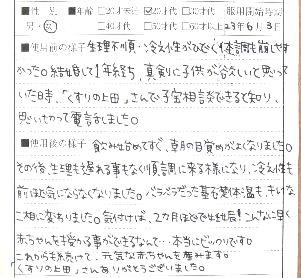 ■性 別 ■年齢 □20才未満 ☑20才代 □30才代 服用開始時期
男・女 □40才代 □50才代 □60才代以上 23年6月3日
■使用前の様子 生理不順・冷え性がひどく体調も崩しやす
かった。結婚して1年経ち、真剣に子供が欲しいと思って
いた時、「くすりの上田」さんで子宝相談できると知り、
思いきって電話しました。
■使用後の様子 飲み始めてすぐ、朝の目覚めがよくなりました。
その後、生理も遅れる事もなく順調に来る様になり、冷え性も
前ほど気にならなくなりました。バラバラだった基礎体温も、きれいな
二相に変わりました。気付けば、2カ月ほどで妊娠!こんなに早く
赤ちゃんを授かる事ができるなんて…本当にビックリです。
これからも続けて、元気な赤ちゃんを産みます。
「くすりの上田」さんありがとうございました。